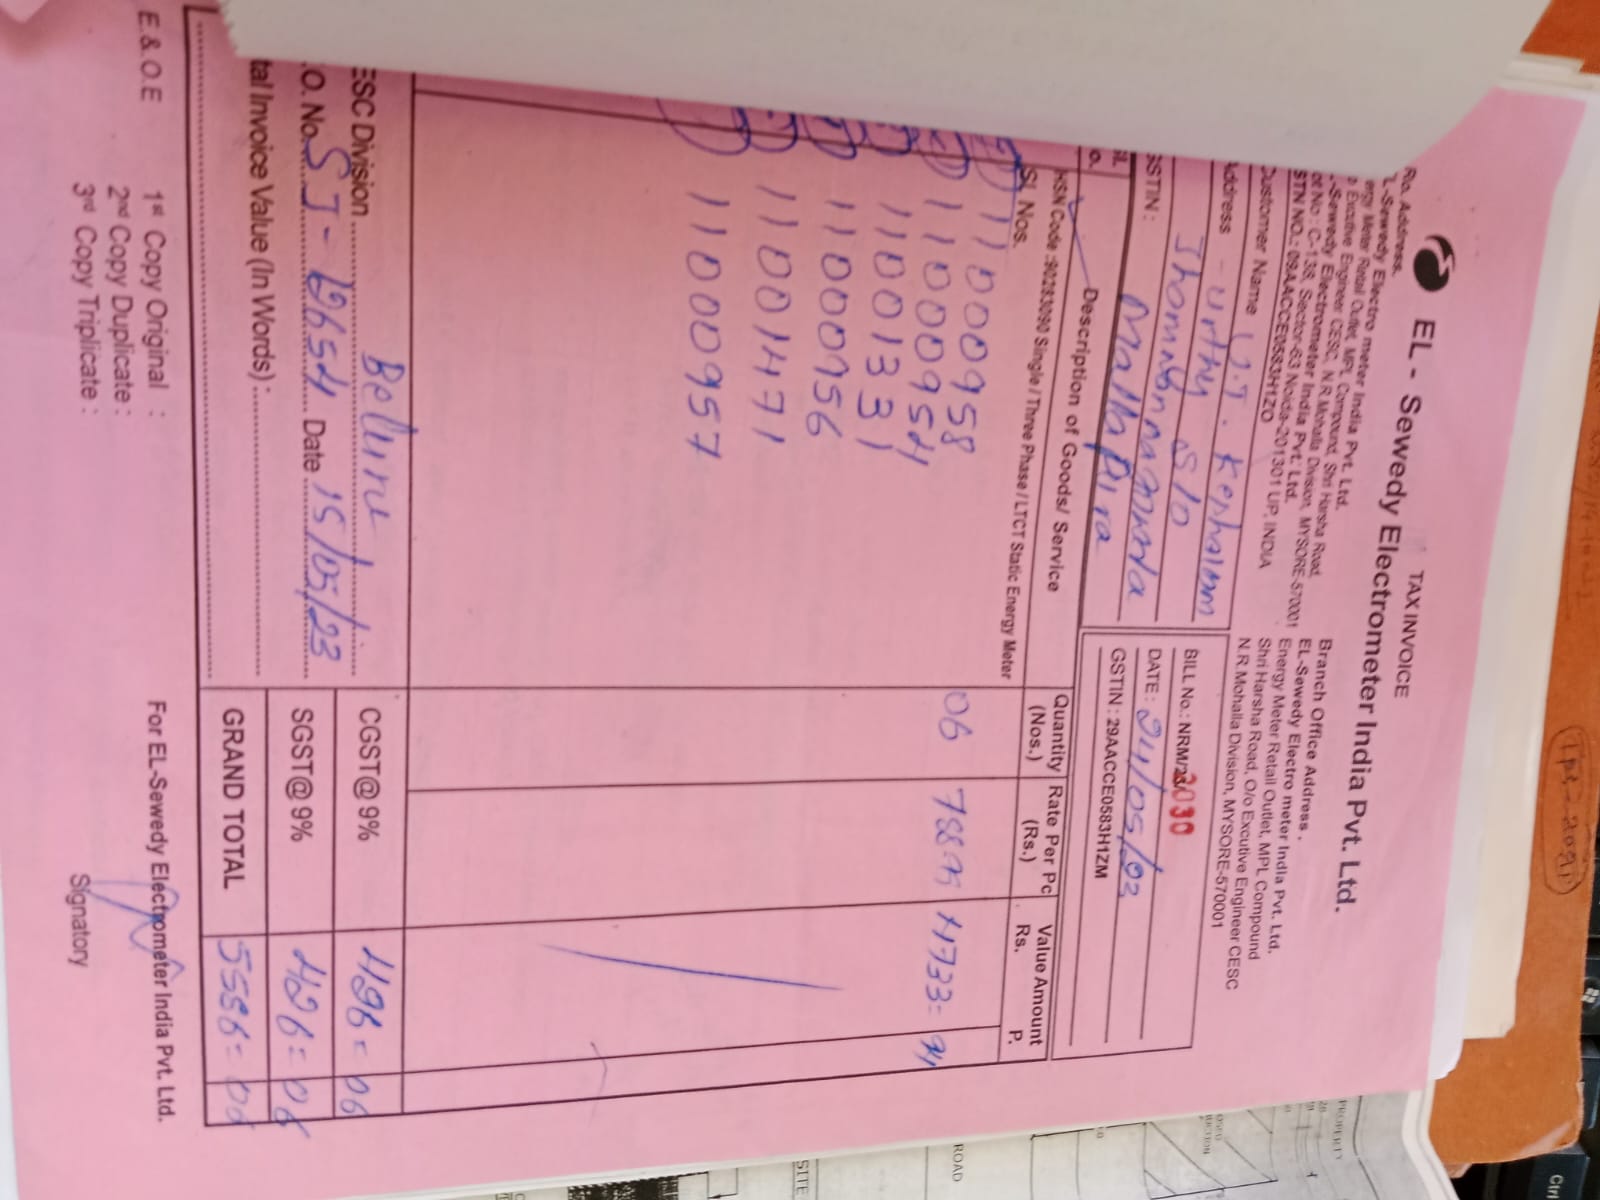 TAX INVOICE
EL - Sewedy Electrometer India Pvt. Ltd.
Rio. Address.
L-Sewedy Electro meter India Pvt. Ltd.
ergy Meter Retail Outlet, MPL Compound, Shri Harsha Road,
o Excutive Engineer CESC, N.R.Mohalla Division, MYSORE-570001
-Sewedy Electrometer India Pvt. Ltd.
ot No : C-138, Sector-63 Noida-201301 UP, INDIA
STN NO.: 09AACCE0583H1ZO
Branch Office Address.
EL-Sewedy Electro meter India Pvt. Ltd.
Energy Meter Retail Outlet, MPL Compound
Shri Harsha Road, O/o Excutive Engineer CESC
N.R.Mohalla Division, MYSORE-570001
Customer Name
Address
S/o
GSTIN :
BILL No.: NRM/23/030
DATE :
GSTIN : 29AACCE0583H1ZM
SL
o.
Description of Goods/ Service
Quantity (Nos.)
Rate Per Pc (Rs.)
Value Amount
Rs. P.
HSN Code :90283090 Single / Three Phase / LTCT Static Energy Meter
Sl. Nos.
11000958
11000954
11001331
11000956
11001471
11000957
06
4733=94
ESC Division
.O. No. Date 15/05/23
tal Invoice Value (In Words) :
CGST@ 9% 426=06
SGST@ 9% 426=06
GRAND TOTAL 5586=06
E.& .O.E
1st Copy Original :
2nd Copy Duplicate :
3rd Copy Triplicate :
For EL-Sewedy Electrometer India Pvt. Ltd.
Signatory
PROPERTY
ROAD
SITE
Ctrl